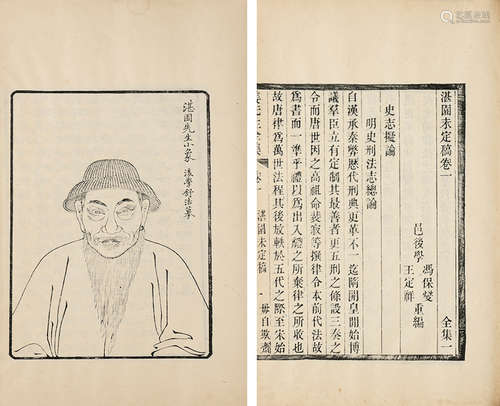 湛園先生小象
後學舒浩摹
湛園未定稿卷一
全集一
邑後學
馮保燮
王定祥
重編
史志擬論
明史刑法志總論
自漢承秦弊歷代刑典更革不一迄隋開皇開始博
議羣臣立有定制其最善者更五刑之條設三奏之
令而唐世因之高祖命裴寂等撰律令本前代法故
爲書而一準乎禮以爲出入隋之所棄律之所收也
故唐律爲萬世法程其後放軼於五代之際至宋始
湛園未定稿
毋自欺齋